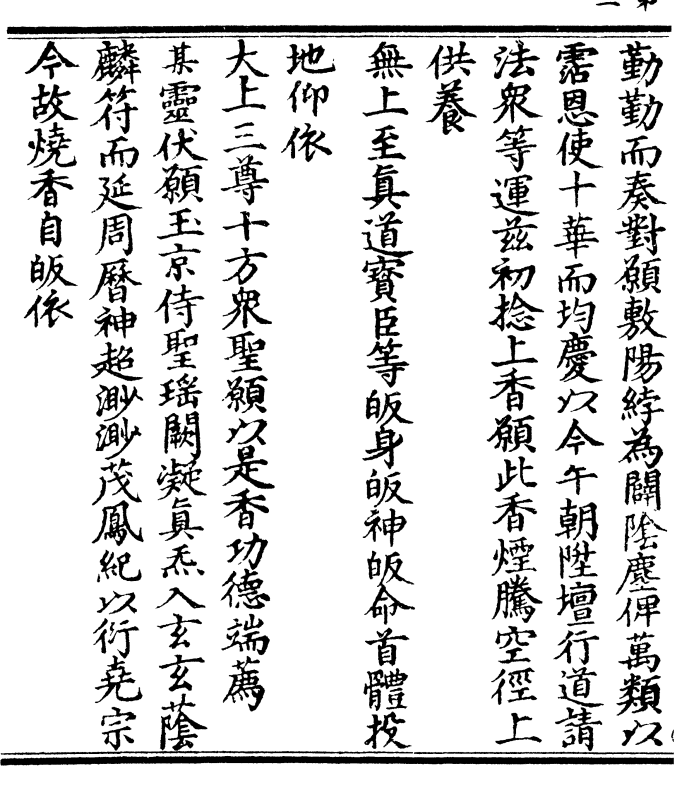 勤勤而奏對願敷陽綍為闢陰塵俾萬類以
霑恩使十華而均慶以今午朝陞壇行道請
法衆等運茲初捻上香願此香煙騰空徑上
供養
無上至眞道寳臣等皈身皈神皈命首體投
地仰依
大上三尊十方衆聖願以是香功德端薦
某靈伏願玉京侍聖瑤闕凝眞炁入玄玄蔭
麟符而延周曆神超渺渺茂鳳紀以衍堯宗
今故燒香自皈依